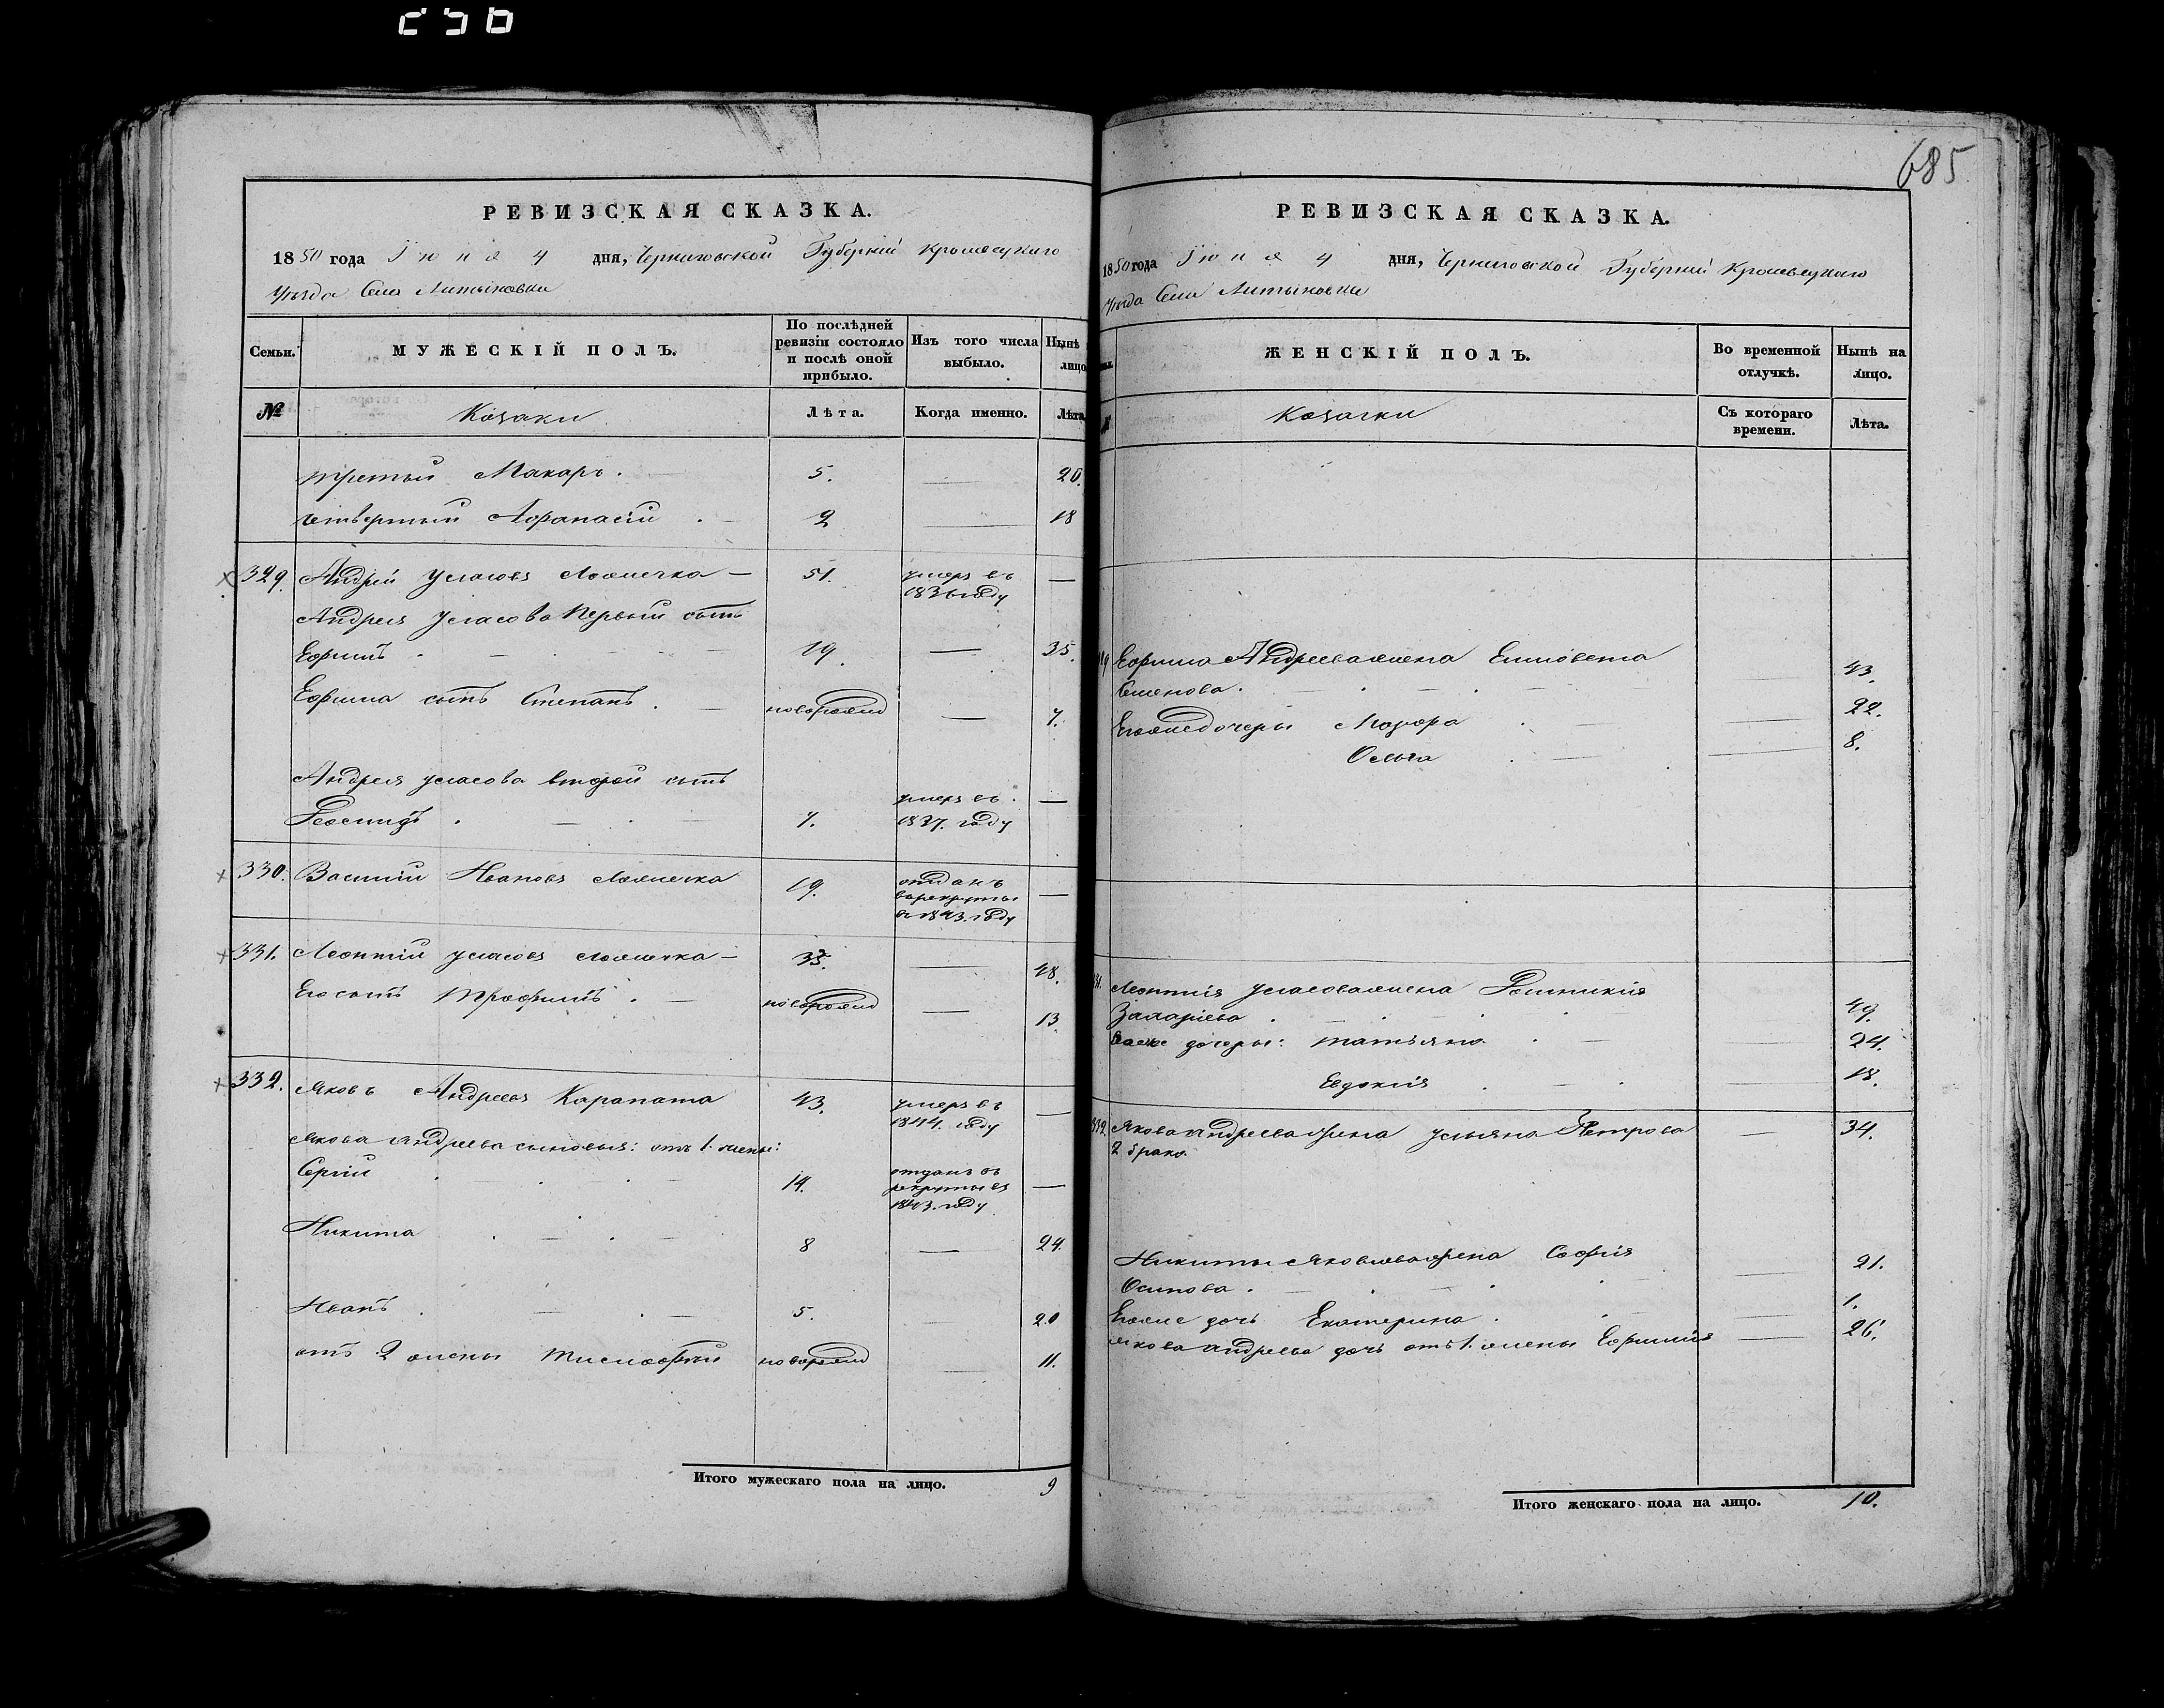 685
РЕВИЗСКАЯ СКАЗКА.
1850 года Іюня 4 дня, Черниговской Губерніи Кролевецкаго
Уѣзда Села Литвиновки
Семьи. МУЖЕСКІЙ ПОЛЪ. По послѣдней ревизіи состояло и послѣ оной прибыло. Изъ того числа выбыло. Нынѣ лицо
№ Козаки Лѣта. Когда именно. Лѣта
третий Макаръ. 5. — 20.
четвертый Афанасій 2 — 18
329. Андрей Уласовъ 51. умеръ въ —
183 году
Андрея Уласова первый сынъ
Ефимъ 19. — 35.
Ефима сынъ Степанъ. новорожд — 7.
Андрея Уласова второй сынъ
7. умеръ въ 1837. году —
330. Василій Ивановъ 19. отданъ —
в рекруты
въ 1843. году
331. Леонтий Уласовъ — 48.
Его сынъ Трофимъ. новорожд — 13.
332. Яковъ Андреевъ Карапата 43. умеръ въ —
1844. году
Якова Андреева сыновья: отъ 1. жены:
Сергій 14. отданъ въ —
рекруты въ
1843. году
Никита 8 — 24.
Иванъ 5. — 20
отъ 2 жены новорожд — 11.
Итого мужескаго пола на лицо. 9
РЕВИЗСКАЯ СКАЗКА.
1850 года Іюня 4 дня, Черниговской Губерніи Кролевецкаго
Уѣзда Села Литвиновки
ЖЕНСКІЙ ПОЛЪ. Во временной отлучкѣ. Нынѣ на лицо.
Козачки Съ котораго времени. Лѣта.
Ефима Андреева жена Елисовета
Семенова. — 43.
Его же дочери — 22.
Ольга — 8.
Леонтія Уласова жена
Захаріева — 49.
дочери: Татьяна — 24.
Евдокія — 18.
332 Якова Андреева жена Ульяна Петрова — 34.
2 брака
Никиты Яковлева жена Софія
Осипова. — 21.
Его же дочь Екатерина. — 1.
Якова Андреева дочь отъ 1. жены Ефимія — 26.
Итого женскаго пола на лицо. 10.